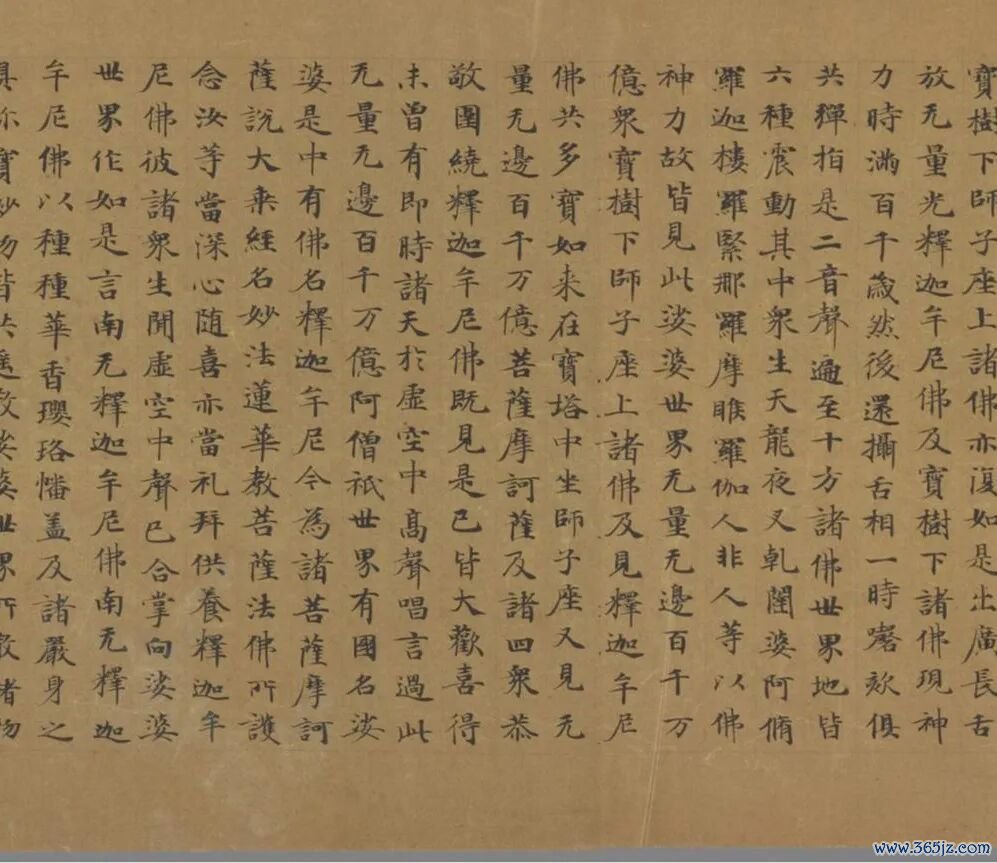 寶樹下師子座上諸佛亦復如是出廣長舌
放无量光釋迦牟尼佛及寶樹下諸佛現神
力時滿百千歲然後還攝舌相一時謦欬俱
共彈指是二音聲遍至十方諸佛世界地皆
六種震動其中衆生天龍夜叉乹闥婆阿脩
羅迦樓羅緊那羅摩睺羅伽人非人等以佛
神力故皆見此娑婆世界无量无邊百千万
億衆寶樹下師子座上諸佛及見釋迦牟尼
佛共多寶如来在寶塔中坐師子座又見无
量无邊百千万億菩薩摩訶薩及諸四衆恭
敬圍繞釋迦牟尼佛既見是已皆大歡喜得
未曾有即時諸天於虛空中髙聲唱言過此
无量无邊百千万億阿僧祇世界有國名娑
婆是中有佛名釋迦牟尼今為諸菩薩摩訶
薩說大乘經名妙法蓮華教菩薩法佛所護
念汝等當深心随喜亦當礼拜供養釋迦牟
尼佛彼諸衆生聞虛空中聲已合掌向娑婆
世界作如是言南无釋迦牟尼佛南无釋迦
牟尼佛以種種華香瓔珞幡盖及諸嚴身之
具珎寶妙物皆共遥散娑婆世界所散諸物
www.365jz.com